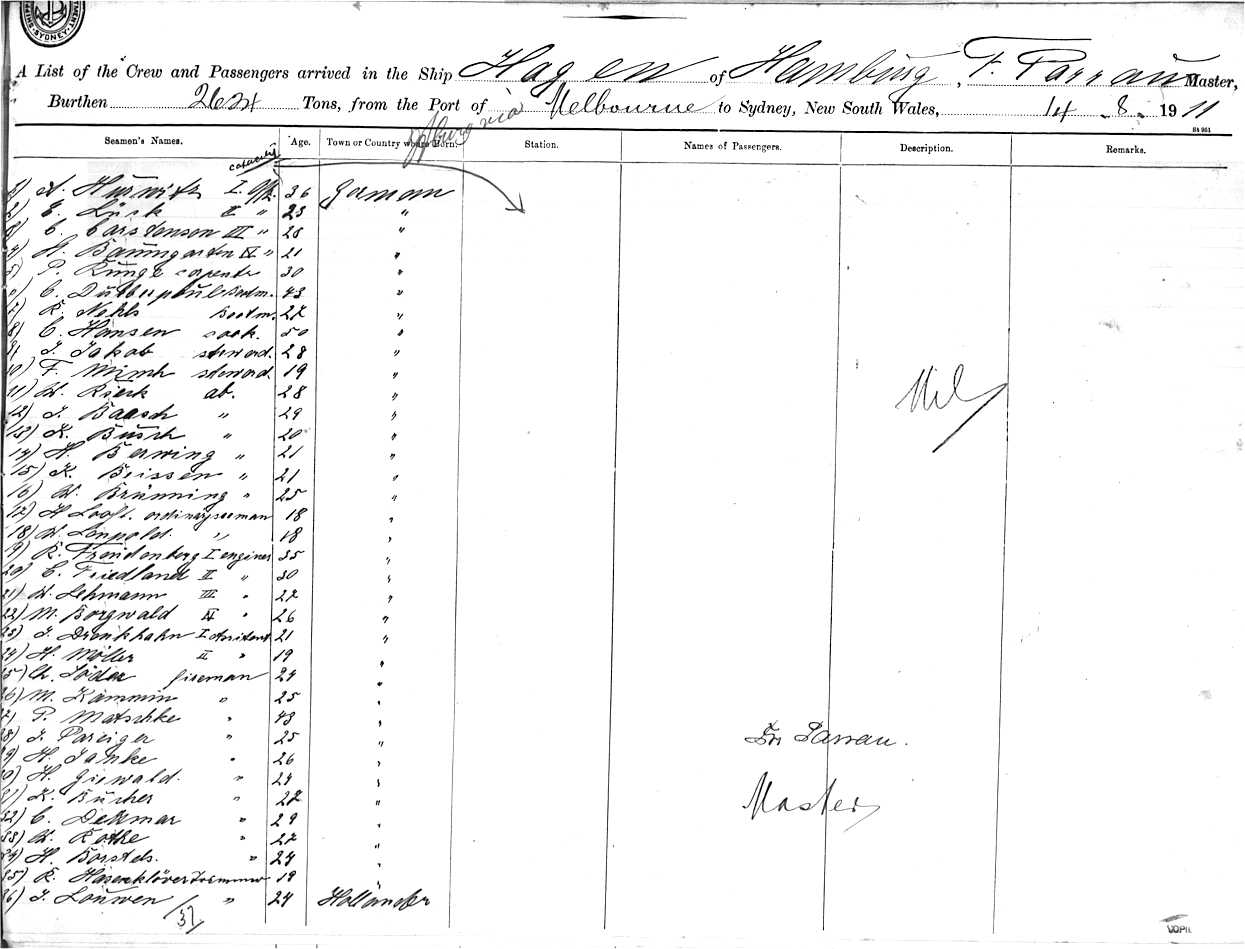 SYDNEY
A List of the Crew and Passengers arrived in the Ship Hagen of Hamburg, F. Parrau Master,
Burthen Tons, from the Port of via Melbourne to Sydney, New South Wales, 14 . 8. 1911
Seamen's Names. Age. Town or Country where Born. Station. Names of Passengers. Description. Remarks.
capacity
1) A. Hurwitz I. 36 German
2) E. Lück II " 23 "
3) C. Carstensen III " 28 "
4) H. Baumgarten IV " 21 "
5) P. Runge carpenter 30 "
6) C. Bootm. 43 "
7) R. Nehls Bootm. 22 "
8) C. Hansen cook. 50 "
9) J. Jakob steward. 28 "
10) F. steward. 19 "
11) W. Rieck ab. 28 "
Nil
12) J. Baasch " 29 "
13) K. Busch " 20 "
14) H. Berwing " 21 "
15) K. Beissen " 21 "
16) W. Brünning " 25 "
17) H. ordinary seeman 18 "
18) W. Leopold. " 18 "
19) R. Freudenberg I engineer 35 "
20) E. Friedland II " 30 "
21) W. Lehmann III " 22 "
22) M. Borgwald IV " 26 "
23) J. Drenkhahn I Assistent 21 "
24) H. Möller II " 19 "
25) Ch. Söder fireman 24 "
26) M. Kämmin " 25 "
27) P. Matschke " 43 "
28) J. Pareiger " 25 "
Fr. Parrau.
29) H. Jahke " 26 "
30) H. Giewald. " 24 "
31) K. Bücher " 22 "
Master
32) C. Dettmar " 29 "
33) W. Rothe " 22 "
34) H. Borstels. " 24 "
35) R. Hasenklöver 19 "
36) J. Louwen " 24 Holländer
37